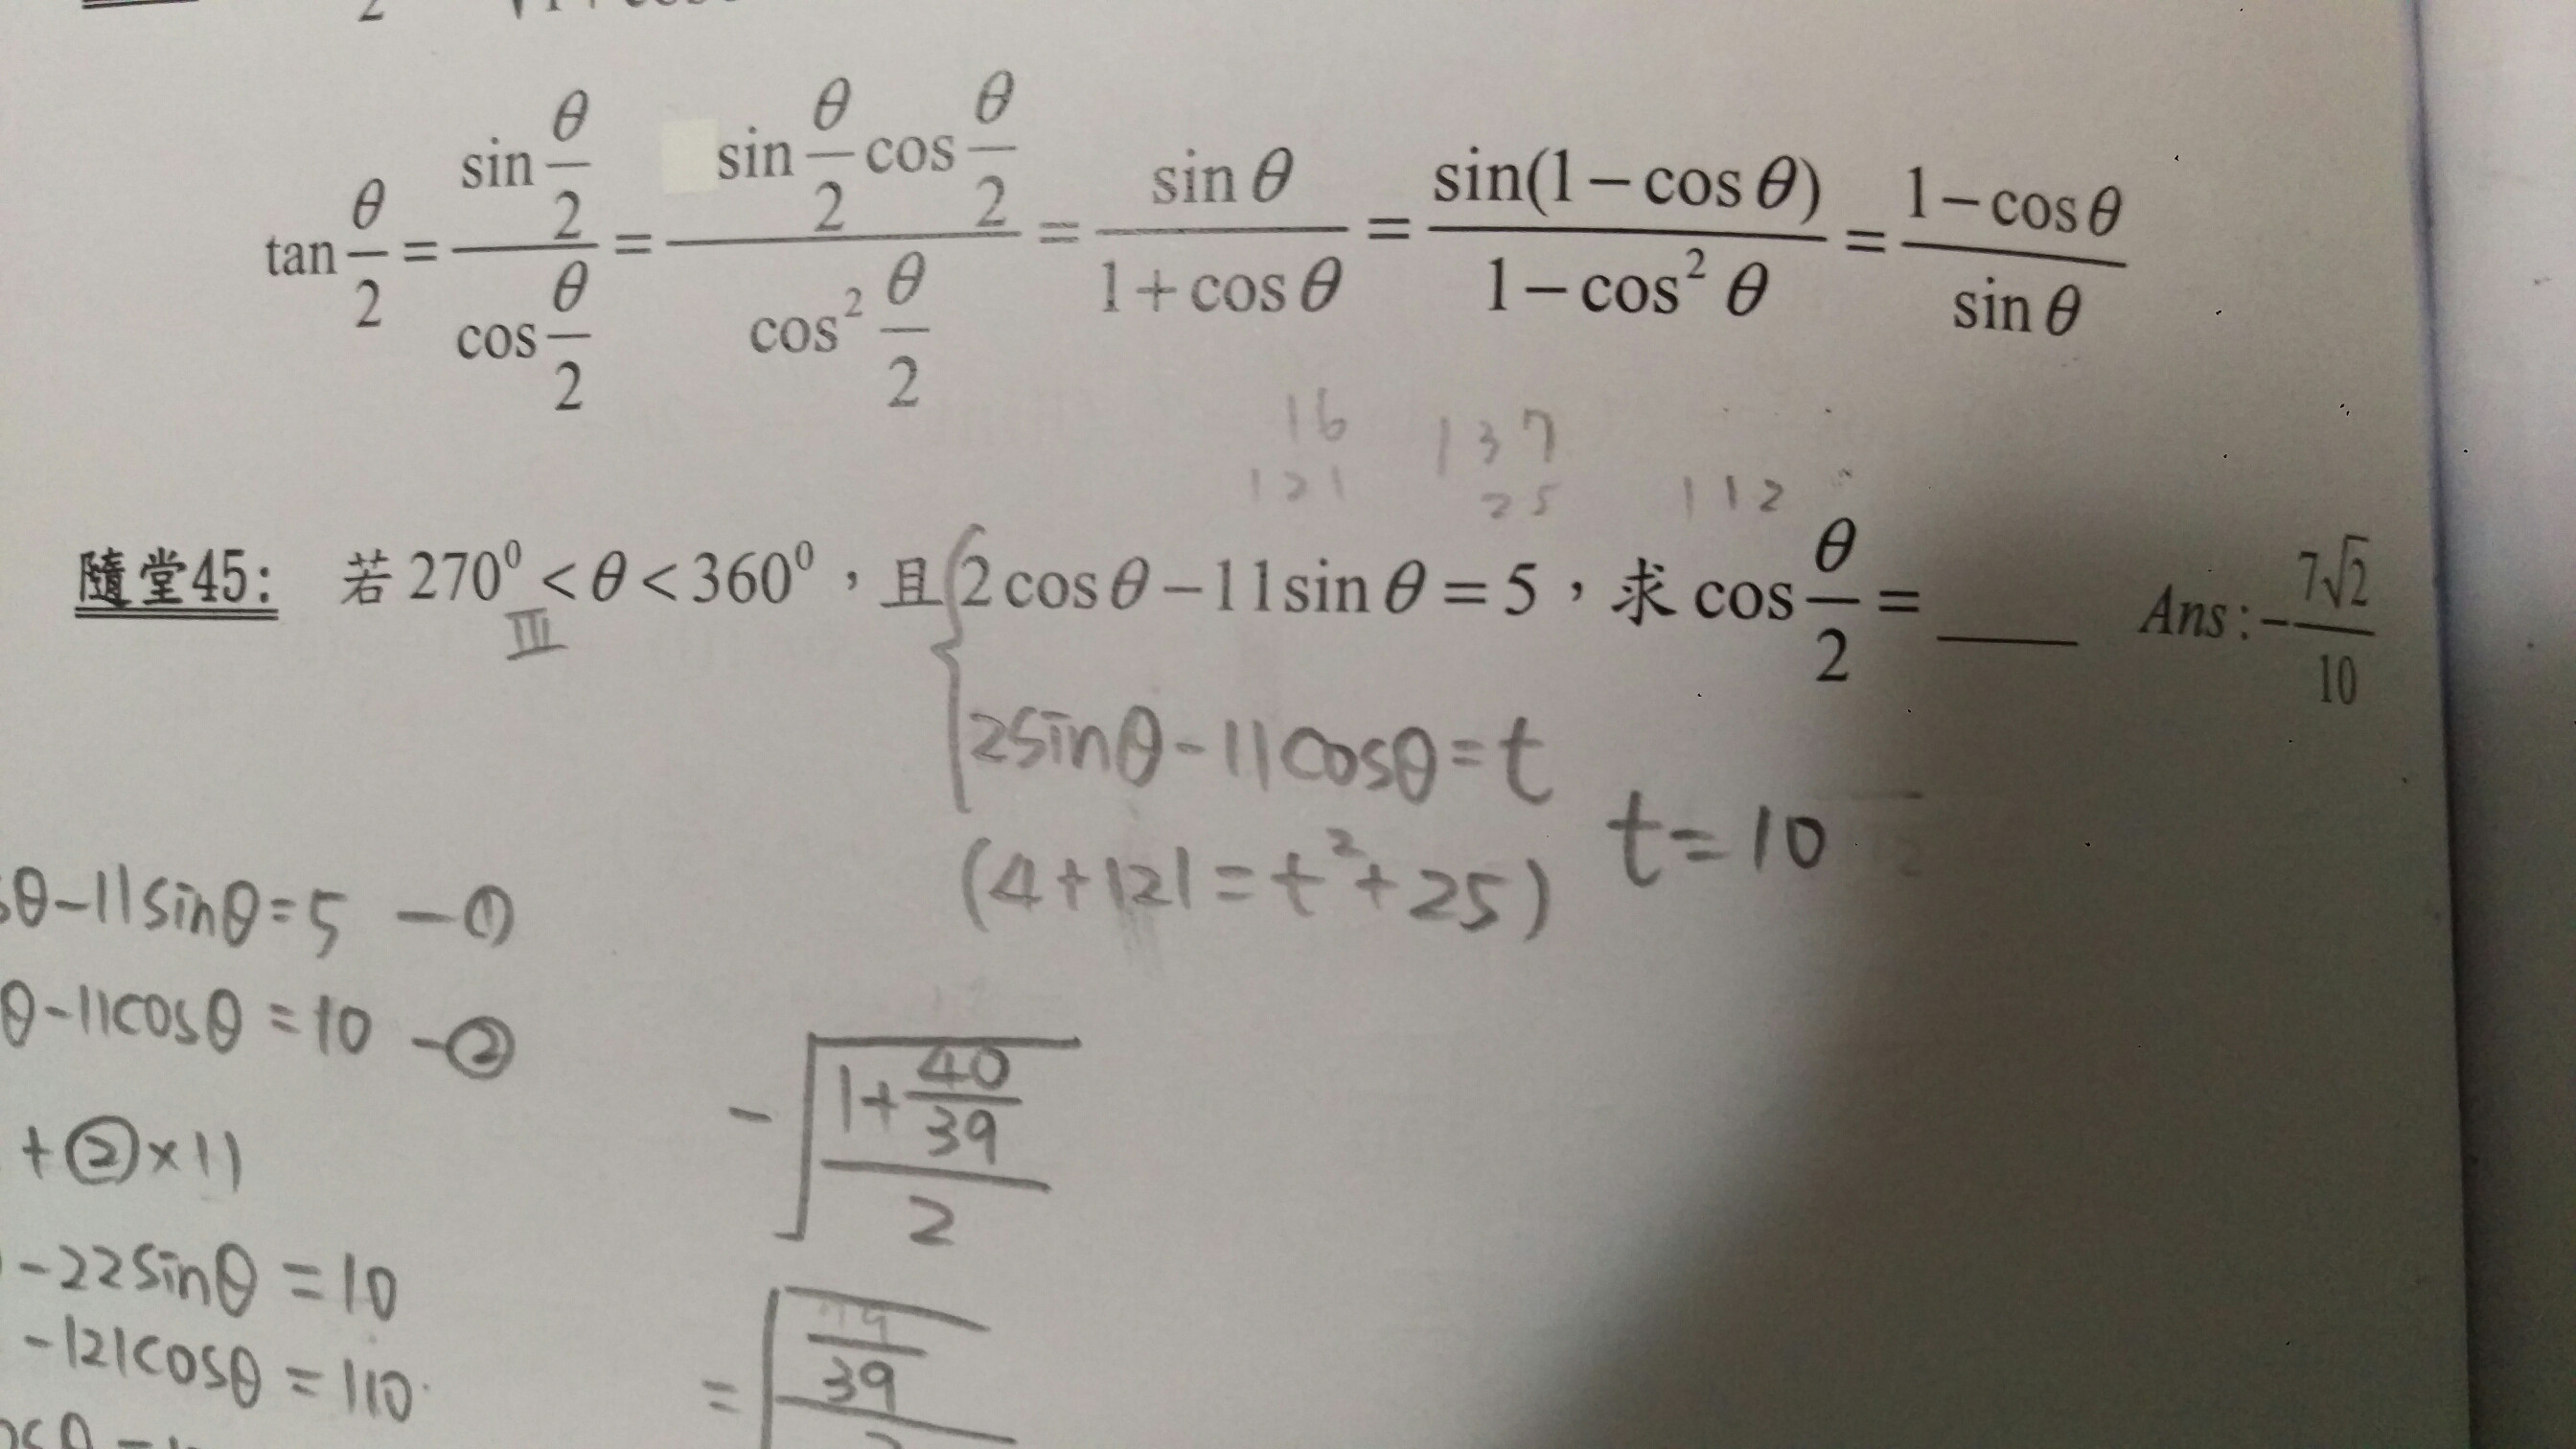 tan θ/2 = (sin θ/2)/(cos θ/2) = (sin θ/2 cos θ/2)/(cos² θ/2) = sin θ/(1+cos θ) = sin(1−cos θ)/(1−cos² θ) = (1−cos θ)/sin θ
16 137
121 25 112
隨堂45: 若 270⁰ < θ < 360⁰，且 2cos θ − 11sin θ = 5，求 cos θ/2 = ____ Ans: −7√2/10
III
2sinθ − 11cosθ = t
(4+121 = t²+25) t = 10
θ−11sinθ = 5 — ①
θ−11cosθ = 10 — ②
+ ② × 11
−22sinθ = 10
−121cosθ = 110
−√((1+40/39)/2)